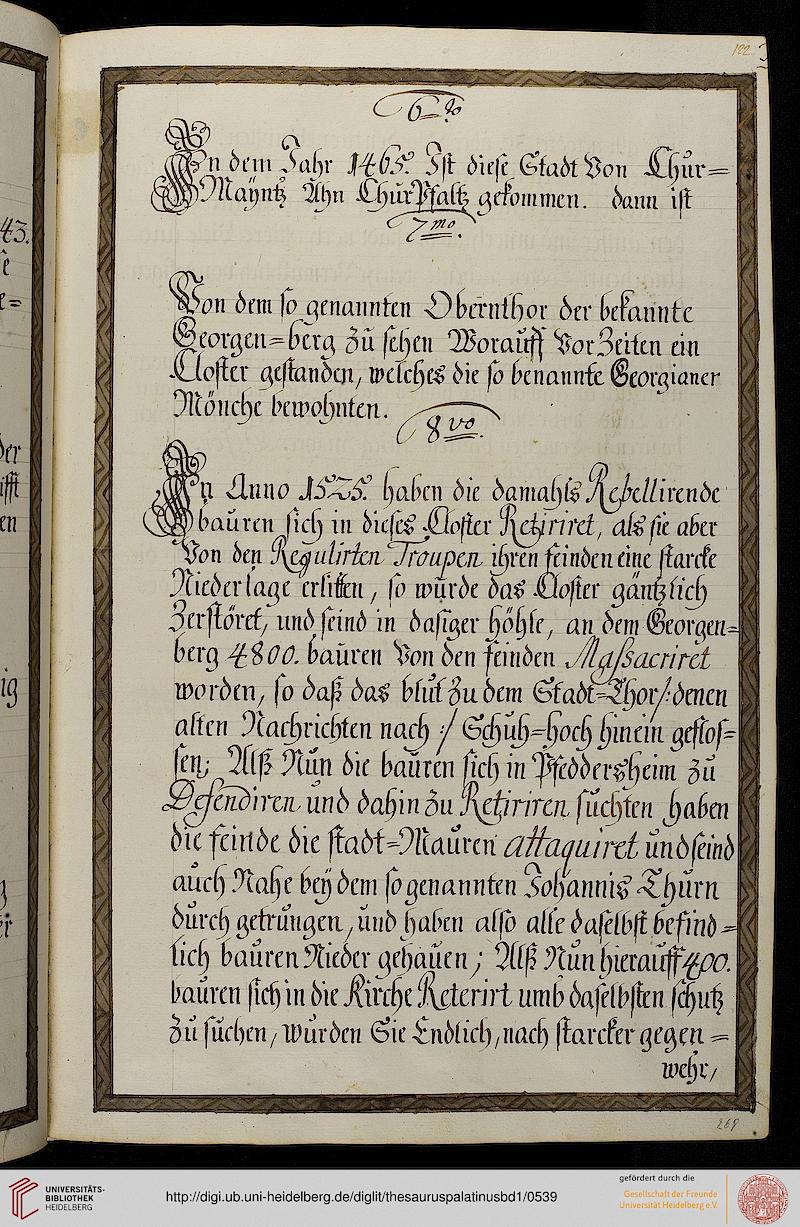 122.
6to
In dem Jahr 1465. Ist diese Stadt Von Chur=
Mäyntz Ahn ChurPfaltz gekommen. dann ist
7mo.
Von dem so genannten Obernthor der bekannte
Georgen=berg zu sehen Worauff Vor Zeiten ein
Closter gestanden, welches die so benannte Georgianer
Mönche bewohnten.
8vo.
In Anno 1525. haben die damahls Rebellirende
bauren sich in dieses Closter Retiriret, als sie aber
Von den Regulirten Troupen ihren feinden eine starcke
Niederlage erlitten, so wurde das Closter gäntzlich
Zerstöret, und seind in dasiger höhle, an dem Georgen=
berg 4800. bauren Von den feinden Massacriret
worden, so daß das blut zu dem Stadt=Thor /: denen
alten Nachrichten nach :/ Schuh=hoch hinein geflos=
sen; Alß Nun die bauren sich in Pfeddersheim zu
Defendiren und dahin zu Retiriren suchten haben
die feinde die stadt=Mauren attaquiret und seind
auch Nahe beÿ dem so genannten Johannis Thurn
durch getrungen, und haben also alle daselbst befind=
lich bauren Nieder gehauen; Alß Nun hierauff 400.
bauren sich in die Kirche Reterirt umb daselbsten schutz
zu suchen, wurden Sie Endlich, nach starcker gegen=
wehr,
269
43.
UNIVERSITÄTS-
BIBLIOTHEK
HEIDELBERG
http://digi.ub.uni-heidelberg.de/diglit/thesauruspalatinusbd1/0539
gefördert durch die
Gesellschaft der Freunde
Universität Heidelberg e.V.